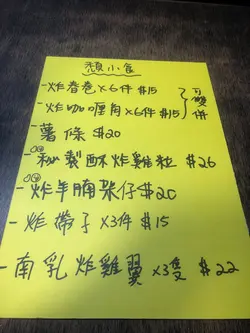 類小食
-炸春卷x6件 $15
-炸咖喱角x6件 $15
可雙併
-薯條 $20
-秘製酥炸雞粒 $26
-炸羊腩架仔 $20
-炸帶子x3件 $15
-南乳炸雞翼x3隻 $22